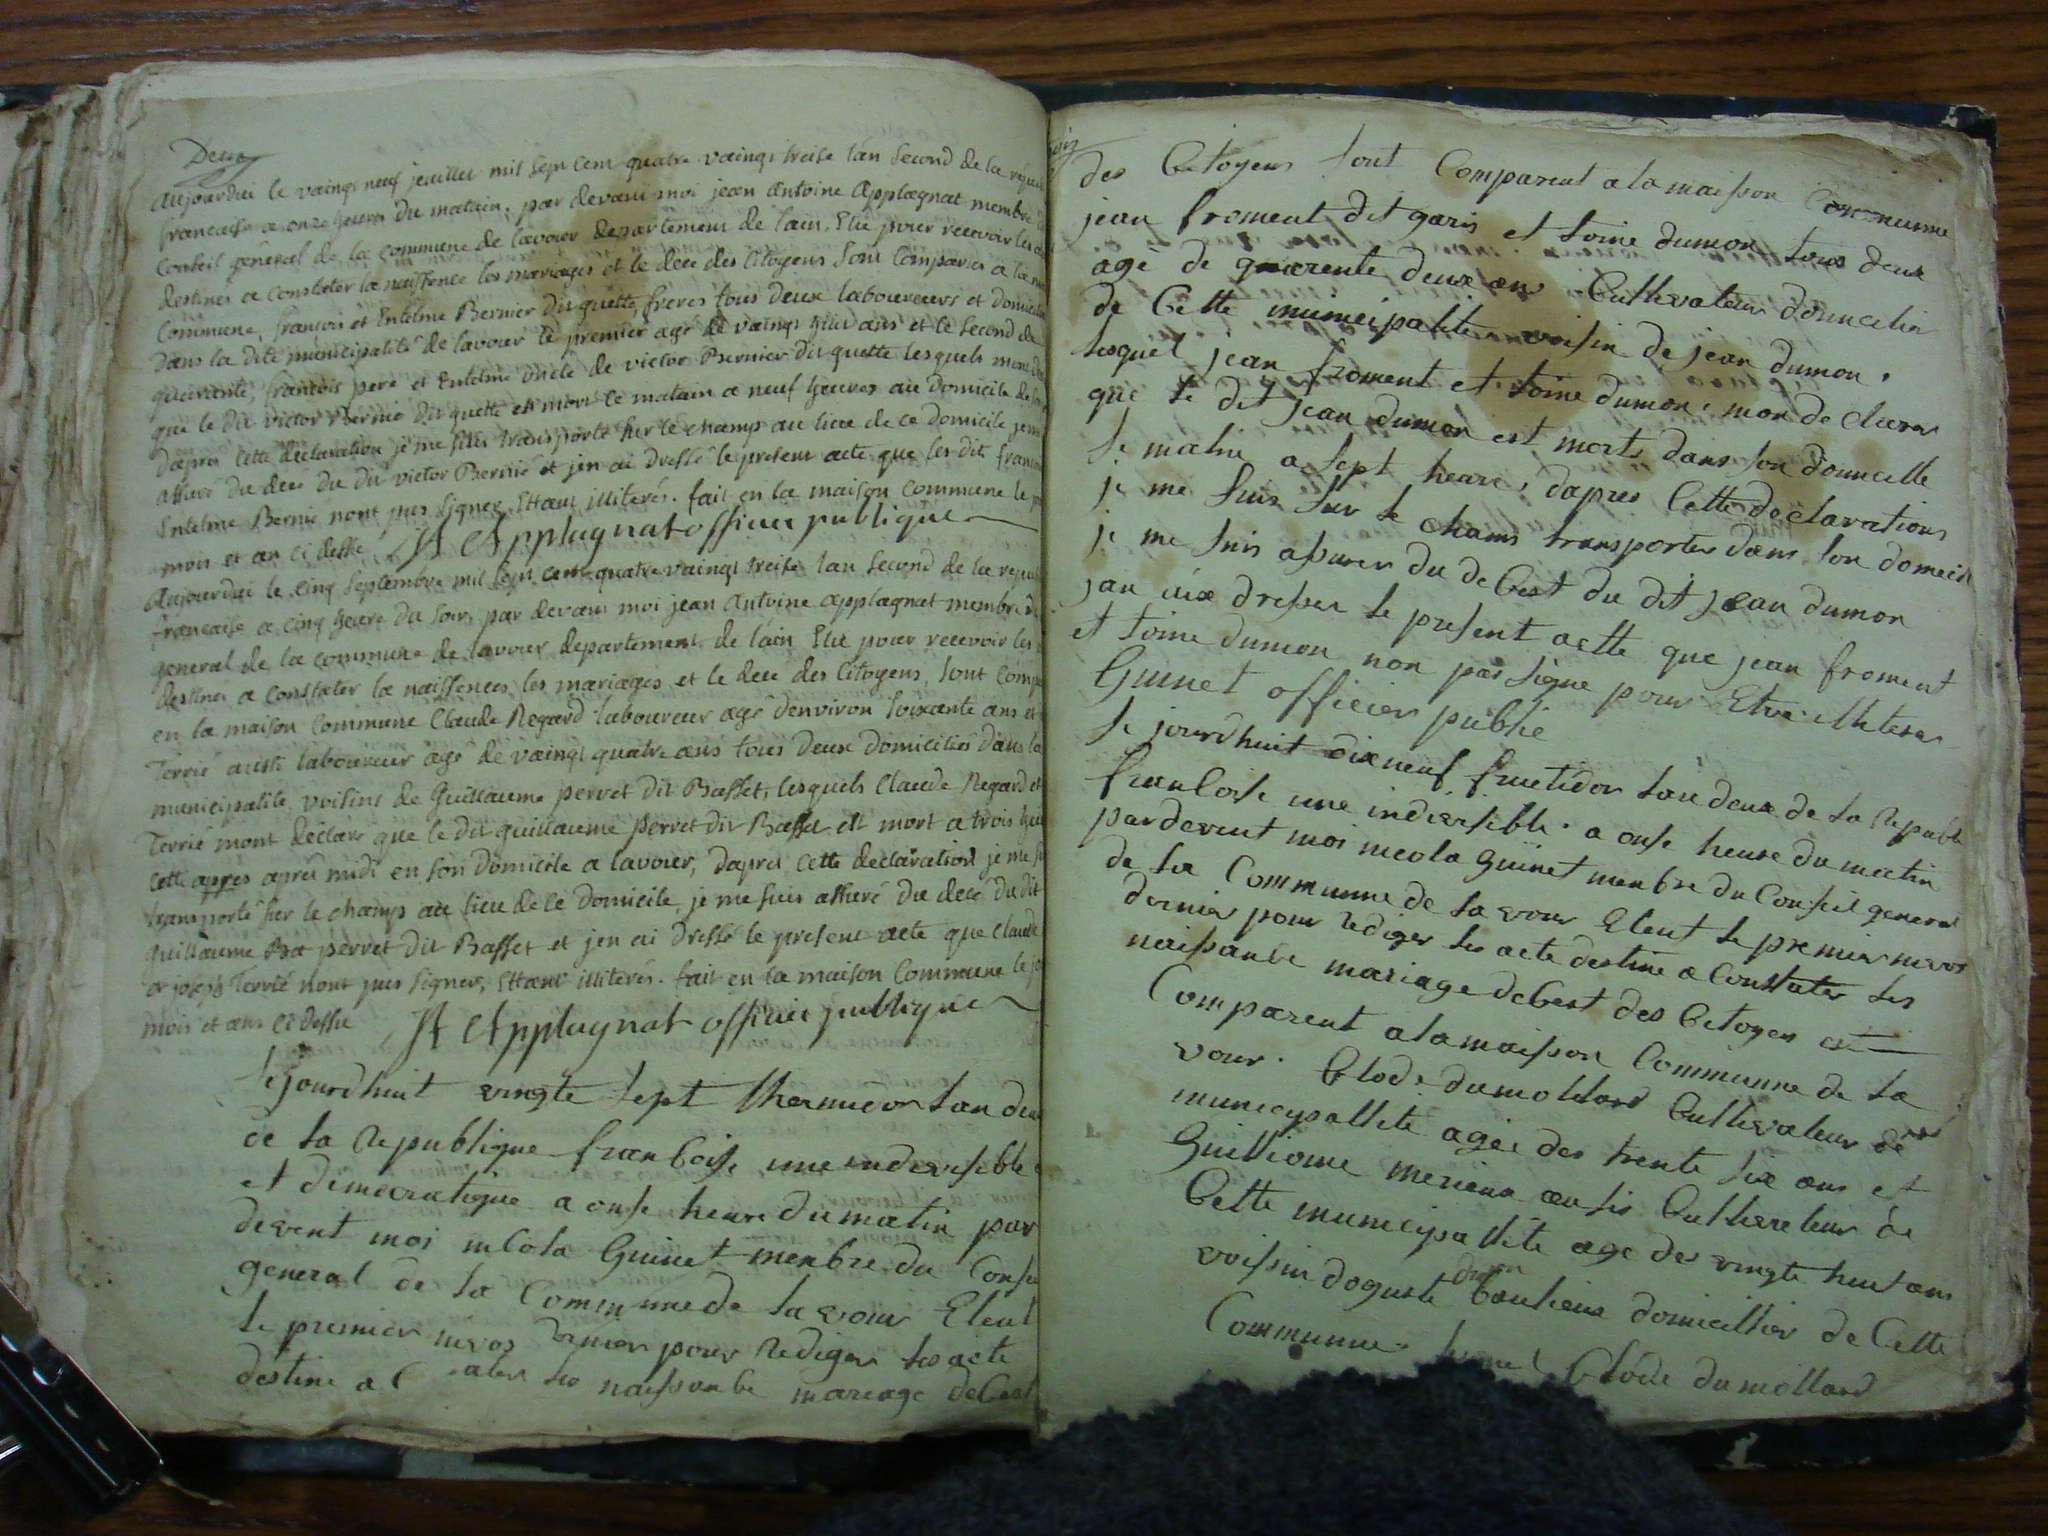 Deux
aujourdui le vaingt neuf jeuillet mil sept cent quatre vaingt treise lan second de la
francaise a onze heures du matain, par devant moi jean antoine Applagnat membre
conseil general de la commune de lavour departement de lain, Elu pour recevoir les
destinés a constater la naissence les mariages et le dece des Citoyens sont Comparus a la
Commune, francois et Entelme Bernier dit quette, freres tous deux laboureurs et
dans la dite municipalité de lavour le premier agé de vaingt huit ans et le second de
quarante, francois pere et Entelme oncle de victor Bernier dit quette lesquels mont
que le dit victor Bernié dit quette est mort ce matain a neuf heures au Domicile de
dapres cette declaration je me suis transporté sur le champs au lieu de ce domicile je
assuré du dece du dit victor Bernié et jen ai dressé le present acte que les dit
Entelme Bernié nont pas signer Ettant illiterés. fait en la maison commune le
mois et an ci dessu JA Applagnat officier publique
aujourdui le cinq septembre mil sept cent quatre vaingt treise lan second de la
francaise a cinq heure du soir, par devant moi jean Antoine applagnat membre
general de la commune de lavour departement de lain Elu pour recevoir les
destines a constater la naissences, les mariages et le dece des Citoyens, sont
en la maison commune Claude Regard laboureur agé denviron soixante ans et
Terrié aussi laboureur agé de vaingt quatre ans tous deux domiciliés dans la
municipalité, voisins de Guillaume perret dit Basset, lesquels Claude Regard et
Terrié mont declaré que le dit guillaume perret dit Basset est mort a trois
cette appres aprés midi en son domicile a lavour, dapres cette declaration je me
transporté sur le champs au lieu de ce domicile, je me suis assuré du decé du dit
guillaume Ba perret dit Basset et jen ai dressé le present acte que Claude
et joseph Terrié nont pas signer, Ettant illiterés. fait en la maison Commune le
mois et an ci dessu JA Applagnat officier publique
le jourdhuit vingte sept thermidor lan
de la Republique francoise une indivisible
et democratique a onse heure du matin par
devent moi nicola Guinet menbre du
general de la Communne de lavour Eleut
le premier nivos dernier pour Rediger les acte
destine a les naissanse mariage
des Citoyens sont Comparent a la maisson Communne
jean froment dit garin et toine dumon tous deux
agé de quarente deux ans Cultivateur
de Cette municipalite voisin de jean dumon.
lesquel jean froment et toine dumon, mon de clarer
que le dit jean dumon est morts dans son
le matin a sept heure, dapres Cette declarations
je me suis sur le chams transporter dans son
je me suis assurer du deCest du dit jean dumon
jan aix dresser le present actte que jean froment
et toine dumon non pas signe pour Etre illiterer
Guinet officier public
le jourdhuit dixneuf fructidor lan deux de la
francoise une indivisible a onse heure du matin
pardevent moi nicola Guinet menbre du Conseil general
de la Communne de lavour Eleut le premier nivos
dernier pour rediger les acte destine a Constater les
naissanse mariage deCest des Citoyen est
Comparent a la maisson Communne de la
vour. Clode dumollard Cultivateur de
municipallité agée des trente six ans et
Guilliome merieux ausis Cultivateur de
Cette municipallite age des vingte huit ans
voissin doguste domicillier de Cette
Communne. Clode dumollard